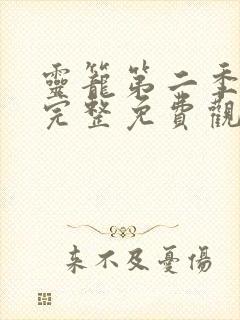 靈籠第二季
完整免費觀
来不及憂傷